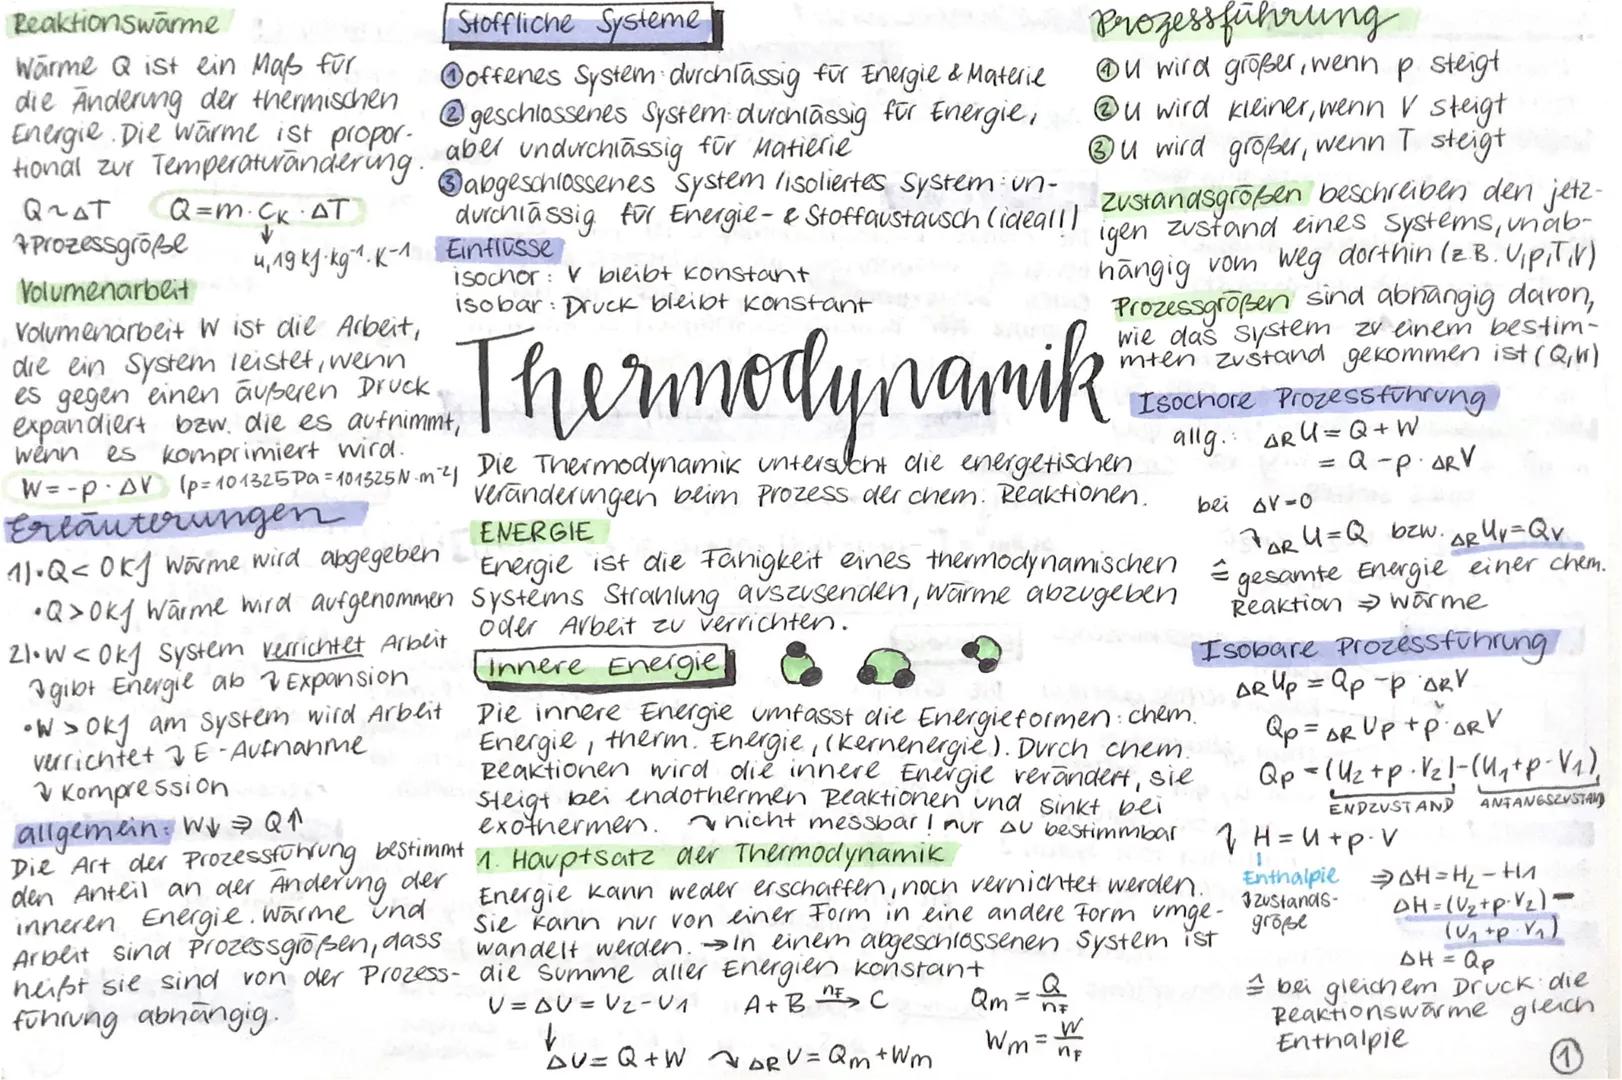 Reaktionswärme
Wärme Q ist ein Maß für
die Änderung der thermischen
Energie. Die Wärme ist propor-
tional zur Temperaturänderung.
Q ~ ΔT Q = m · cK · ΔT
↴ Prozessgröße ↓
4,19 kJ · kg⁻¹ · K⁻¹
Volumenarbeit
Volumenarbeit W ist die Arbeit,
die ein System leistet, wenn
es gegen einen äußeren Druck
expandiert bzw. die es aufnimmt,
wenn es komprimiert wird.
W = -p · ΔV (p = 101325 Pa = 101325 N · m⁻²)
Erläuterungen
1) • Q < 0 kJ Wärme wird abgegeben
• Q > 0 kJ Wärme wird aufgenommen
2) • W < 0 kJ System verrichtet Arbeit
↴ gibt Energie ab ↴ Expansion
• W > 0 kJ am System wird Arbeit
verrichtet ↴ E-Aufnahme
↴ Kompression
allgemein: W↓ ⇒ Q↑
Die Art der Prozessführung bestimmt
den Anteil an der Änderung der
inneren Energie. Wärme und
Arbeit sind Prozessgrößen, dass
heißt sie sind von der Prozess-
führung abhängig.
Stoffliche Systeme
① offenes System: durchlässig für Energie & Materie
② geschlossenes System: durchlässig für Energie,
aber undurchlässig für Matierie
③ abgeschlossenes System / isoliertes System: un-
durchlässig für Energie- & Stoffaustausch (ideal!)
Einflüsse
isochor: V bleibt konstant
isobar: Druck bleibt konstant
Thermodynamik
Die Thermodynamik untersucht die energetischen
Veränderungen beim Prozess der chem. Reaktionen.
ENERGIE
Energie ist die Fähigkeit eines thermodynamischen
Systems Strahlung auszusenden, Wärme abzugeben
oder Arbeit zu verrichten.
Innere Energie
Die innere Energie umfasst die Energieformen: chem.
Energie, therm. Energie, (Kernenergie). Durch chem.
Reaktionen wird die innere Energie verändert, sie
steigt bei endothermen Reaktionen und sinkt bei
exothermen. ↴ nicht messbar! nur ΔU bestimmbar
1. Hauptsatz der Thermodynamik
Energie kann weder erschaffen, noch vernichtet werden.
Sie kann nur von einer Form in eine andere Form umge-
wandelt werden. → In einem abgeschlossenen System ist
die Summe aller Energien konstant
U = ΔU = U2 - U1 A + B nF→ C Qm = Q/nF
↓
ΔU = Q + W ↴ ΔRU = Qm + Wm Wm = W/nF
Prozessführung
① U wird größer, wenn p steigt
② U wird kleiner, wenn V steigt
③ U wird größer, wenn T steigt
Zustandsgrößen beschreiben den jetz-
igen Zustand eines Systems, unab-
hängig vom Weg dorthin (z.B. U,p,T,V)
Prozessgrößen sind abhängig davon,
wie das System zu einem bestim-
mten Zustand gekommen ist (Q,W)
Isochore Prozessführung
allg.: ΔRU = Q + W
= Q - p · ΔRV
bei ΔV = 0
↴ ΔRU = Q bzw. ΔRUV = QV
≙ gesamte Energie einer chem.
Reaktion ⇒ Wärme
Isobare Prozessführung
ΔRUp = Qp - p · ΔRV
Qp = ΔRUp + p · ΔRV
Qp = (U2 + p · V2) - (U1 + p · V1)
ENDZUSTAND ANFANGSZUSTAND
↴ H = U + p · V
Enthalpie
↴ Zustands-
größe
⇒ ΔH = H2 - H1
ΔH = (U2 + p · V2) -
(U1 + p · V1)
ΔH = Qp
≙ bei gleichem Druck: die
Reaktionswärme gleich
Enthalpie
①